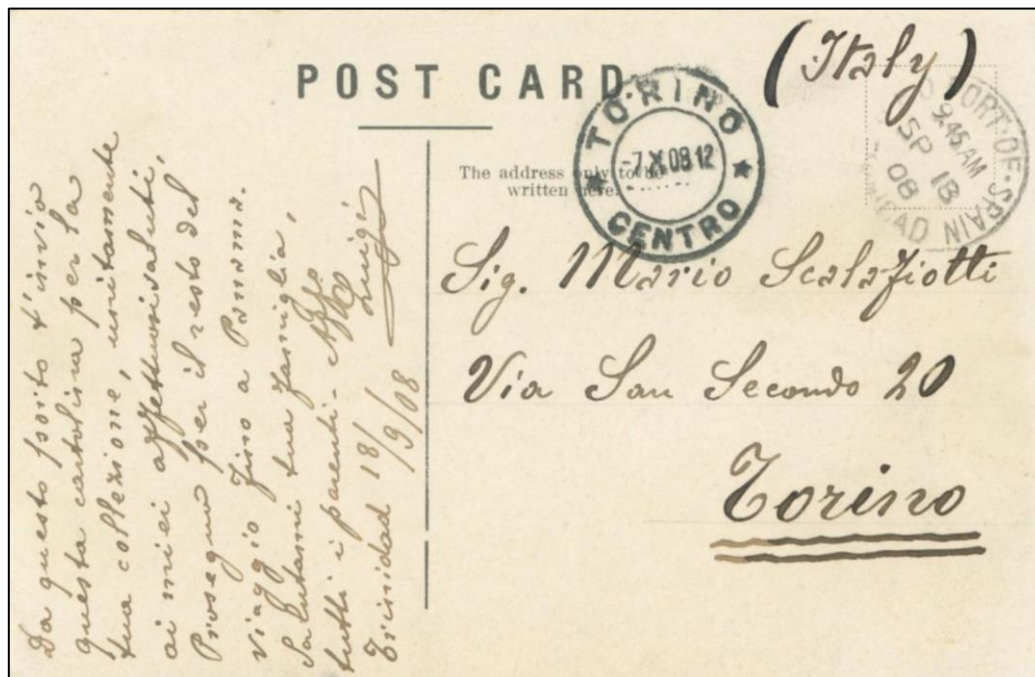 POST CARD.
(Italy)
TORINO
-7.X.08.12
CENTRO
PORT-OF-SPAIN
9.45AM
SP 18
08
The address only to be
written here.
Sig. Mario Scalafiotti
Via San Secondo 20
Torino
Da questo porito t'invio
questa cartolina per la
tua collezione, unitamente
ai miei affettuosi saluti,
Proseguo per il resto del
viaggio fino a Panama.
Salutami tua famiglia,
tutti i parenti - Affo
Luigi
Trinidad 18/9/08